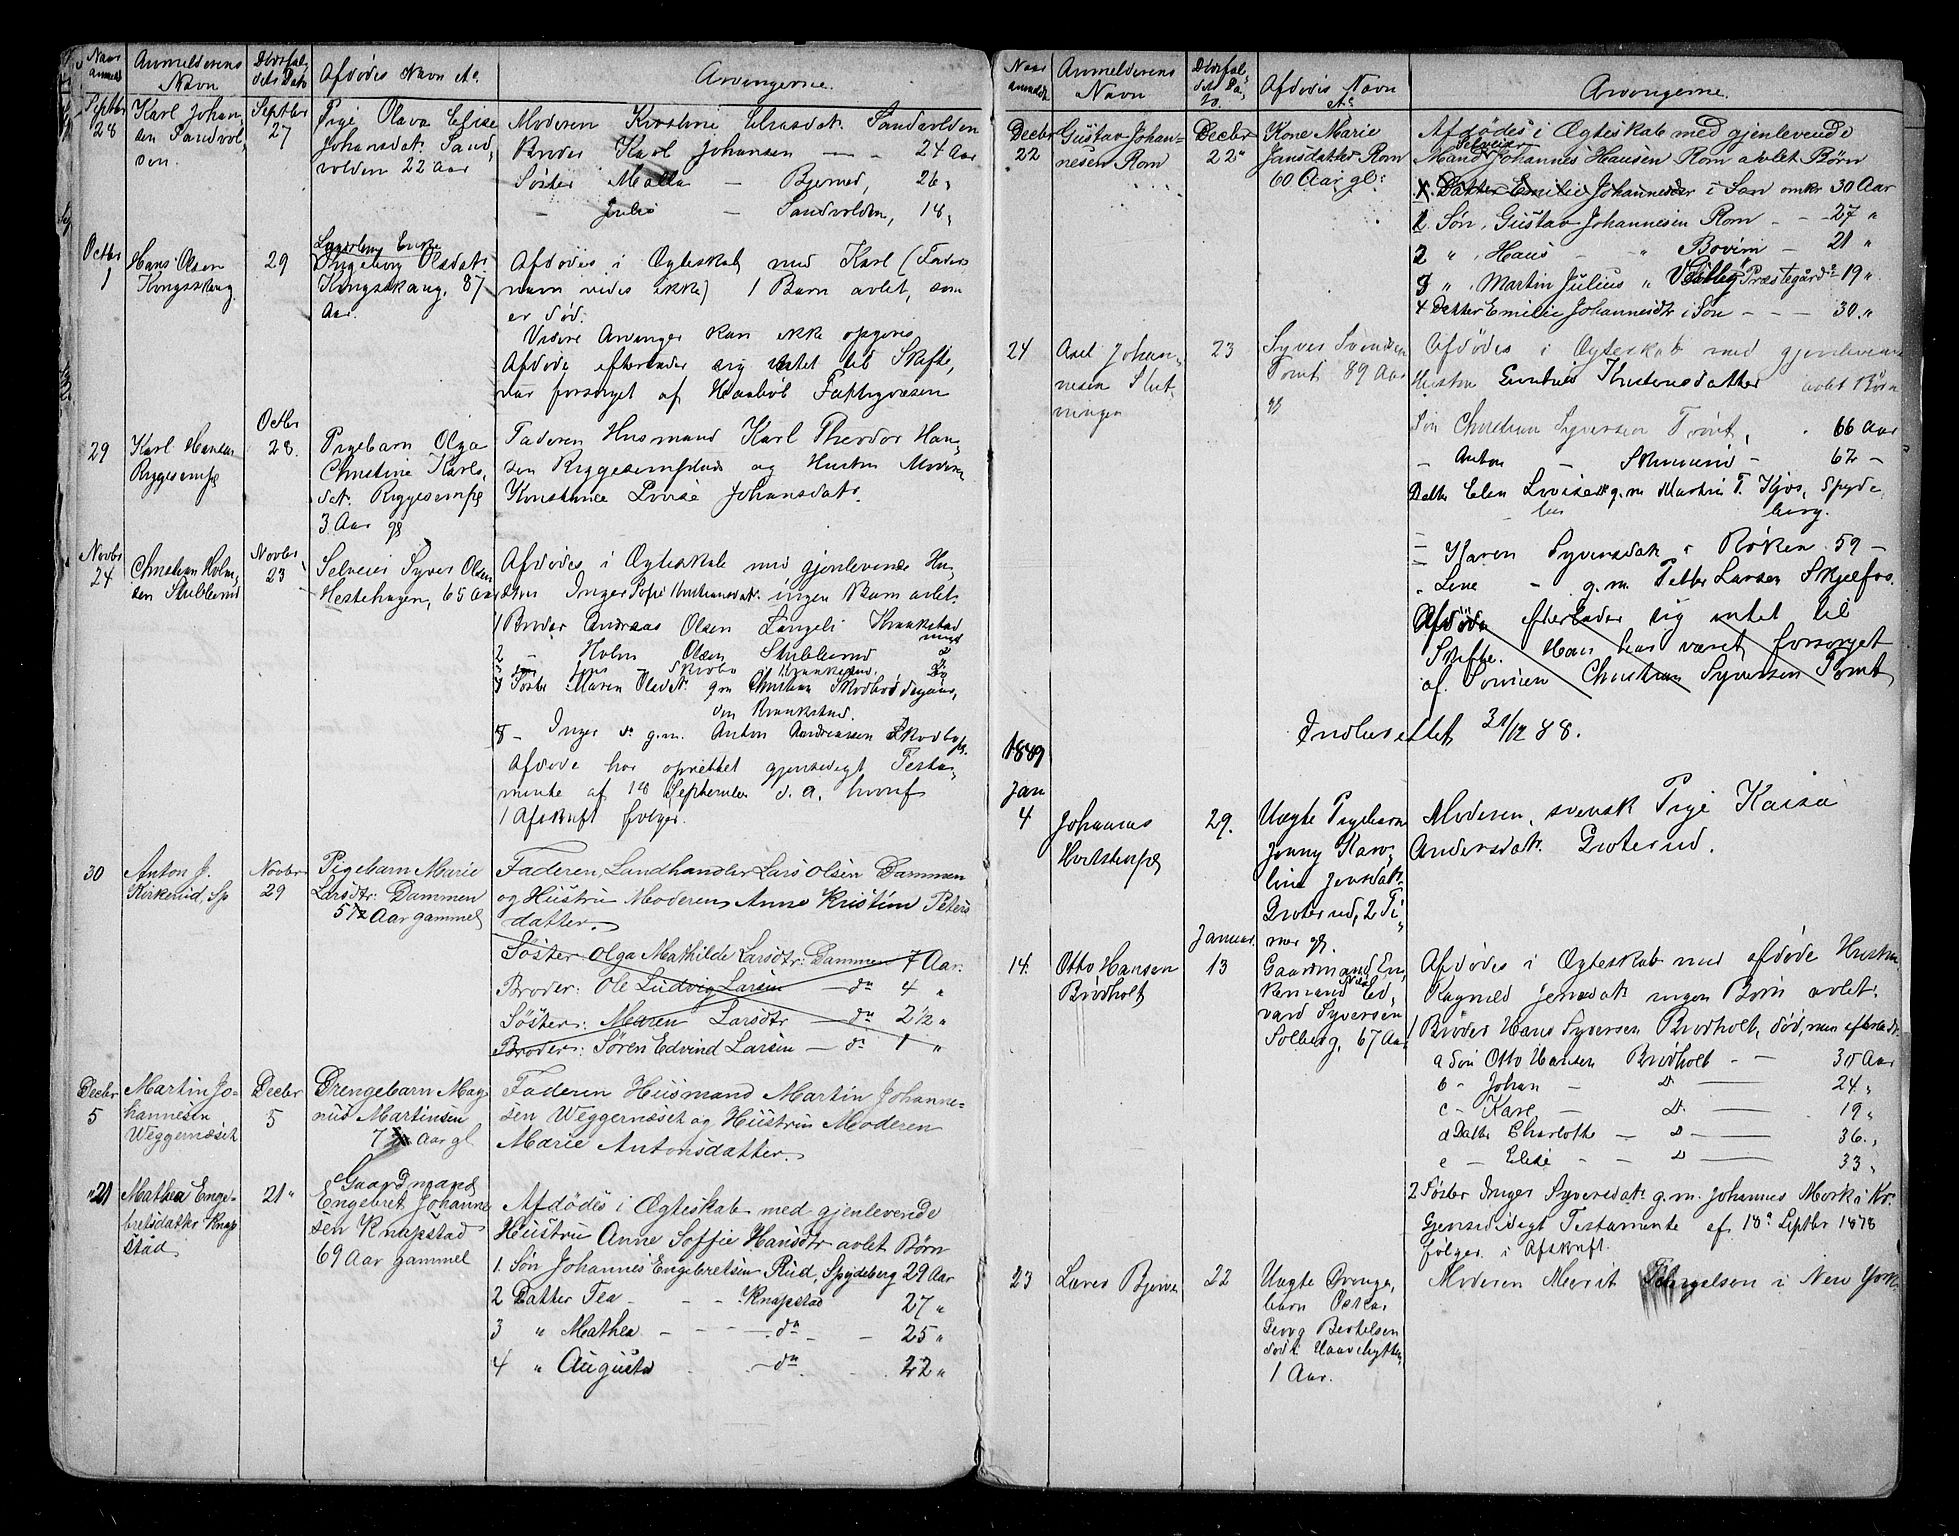 Naar anmeldt
Anmelderens Navn
Dödsfaldets Dato
Afdödes Navn &c.
Arvingerne.
Septbr 28
Karl Johansen Sandvolden.
Septbr 27
Pige Olava Elise
Johansdat. Sandvolden 22 Aar
Moderen Kirstine dat. Sandvolden
Broder Karl Johansen — 24 Aar
Söster — Bjerned, 26 "
— Julie — Sandvolden, 18 "
Octbr 1
Hans Olsen
Kongsskaug
29
Ingeborg Olsdat.
Kongsskaug, 87
Aar.
Afdödes i Ægteskab med Karl (Faders
navn vides ikke) 1 Barn avlet, som
er död.
Videre Arvinger kan ikke opgives
Afdöde efterlader sig intet til Skifte,
var forsörget af Haaböl Fattigvæsen
29
Karl Hansen
Octbr 28.
Pigebarn Olga
Christine Karlsdat.
3 Aar gl
Faderen Husmand Karl Theodor Hansen
og Hustru Moderen
Konstance Lovise Johansdat.
Novbr 24
Christian Holmsen Stublerud
Novbr 23
Selveier Syver Olsen
Hestehagen, 65 Aar
Afdödes i Ægteskab med gjenlevende Hustru
Inger Sofie Kristiansdat. ingen Barn avlet.
1 Broder Andreas Olsen Langeli Kraakstad
2 — Holm Olsen Stublerud
Söster Maren Olsdat. g.m. Christian
Kraakstad.
— Inger do g.m. Anton Andreassen
Afdöde har oprettet gjensidigt Testamente
af 18 September d.a. hvoraf
1 Afskrift fölger.
30
Anton J.
Kirkerud, Sp
Novbr 29
Pigebarn Marie
Larsdtr. Dammen
5 1/2 Aar gammel
Faderen, Landhandler Lars Olsen Dammen
og Hustru Moderen Anne Kristine Petersdatter.
Söster Olga Mathilde Larsdtr. Dammen 7 Aar.
Broder: Ole Ludvig Larsen — do 4 "
Söster: Maren Larsdtr — do 2 1/2 "
Broder: Sören Edvind Larsen — do 1 "
Decbr 5
Martin Johannesen
Weggernæset
Decbr 5
Drengebarn Magnus Martinsen
7 Aar gl.
Faderen Husmand Martin Johannesen
Weggernæset og Hustru Moderen
Marie Antonsdatter.
"21
Mathea Engebretsdatter Knapstad
21 "
Gaardmand
Engebret Johannesen Knapstad
69 Aar gammel
Afdödes i Ægteskab med gjenlevende
Hustru Anne Soffie Hansdtr avlet Börn
1. Sön Johannes Engebretsen Rud, Spydeberg 29 Aar
2 Datter Tea — Knapstad 27 "
3 " Mathea — do — 25 "
4 " Augusta — do 22 "
Naar anmeldt
Anmelderens Navn
Dödsfaldets Dato.
Afdödes Navn &c
Arvingerne.
Decbr 22
Gustav Johannesen Rom
Decbr 22 "
Kone Marie
Jansdatter Rom
60 Aar gl.
Afdödes i Ægteskab med gjenlevende
Selveier
Mand Johannes Hansen Rom avlet Börn
1. Datter Emilie Johannesdtr i Son omkr 30 Aar
1 Sön, Gustav Johannesen Rom — 27 "
2 " Hans — " Bovim — 21 "
3 " Martin Julius " Præstegård 19 "
4 Datter Emilie Johannesdtr i Son — 30 "
24
Axel Johannesen
23
Syver Svendsen
Tomt 89 Aar
gl
Afdödes i Ægteskab med gjenlevende
Hustru Thostensdatter avlet Börn
Sön Christian Syversen Tomt, 66 Aar
— Anton — 62 —
Datter Elen Lovise g.m. Martin T. Kjos, Spydeberg.
— Karen Syversdat. i Röken 59 —
" Lene — g.m. Petter Larsen Skjelfos.
Afdöde efterlader sig intet til
Skifte. Han har været forsörget
af Sönnen Christian Syversen Tomt
Indberettet 31/12 88.
1889
Jan
4
Johannes
29.
Uægte Pigebarn
Jenny Karoline Jensdat.
Groterud, 2 Timer gl.
Moderen, svensk Pige Kaisa
Andersdat. Groterud.
14.
Otto Hansen
Brödholt
Januar.
13
Gaardmand Enkemand Edvard Syversen
Solberg, 67 Aar
Afdödes i Ægteskab med afdöde Hustru
Ragnild Jensdat. ingen Börn avlet.
1 Broder Hans Syversen Brödholt, död, men efterladt
a Sön Otto Hansen Brödholt — 30 Aar
b — Johan — Do — 24 "
c — Karl — Do — 19 "
d Datter Charlotte — Do — 36 "
e — Elise — Do — 33 "
2 Söster Inger Syversdat. g.m. Johannes Mork i Kr.
Gjensidigt Testamente af 18de Septbr 1878
fölger i Afskrift.
23
Lars Bjerve
22
Uægte Drengebarn Oscar
Georg Bertelsen
1 Aar.
Moderen Merit Engelsen i New York